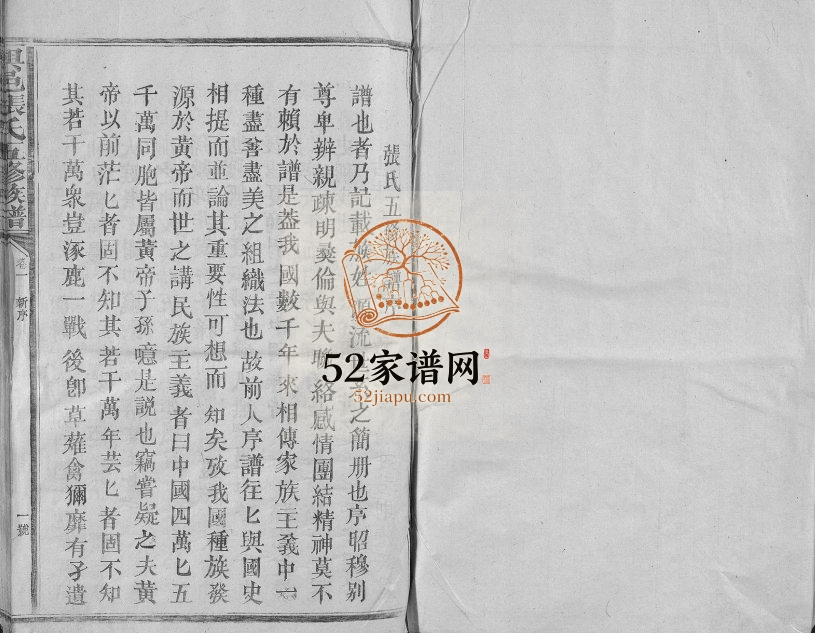 張氏五修族譜序
譜也者乃記載族姓源流世系之簡册也序昭穆别
尊卑辨親疎明彜倫與夫聯絡感情團結精神莫不
有賴於譜是葢我國數千年來相傳家族主義中一
種盡善盡美之組織法也故前人序譜往匕與國史
相提而並論其重要性可想而知矣攷我國種族發
源於黄帝而世之講民族主義者曰中國四萬匕五
千萬同胞皆屬黄帝子孫噫是説也竊嘗疑之夫黄
帝以前茫匕者固不知其若干萬年芸匕者固不知
其若干萬衆豈涿鹿一戰後卽草薙禽獮靡有孑遺
張氏五修族譜
卷一
新序
一號
52家谱网
52jiapu.com